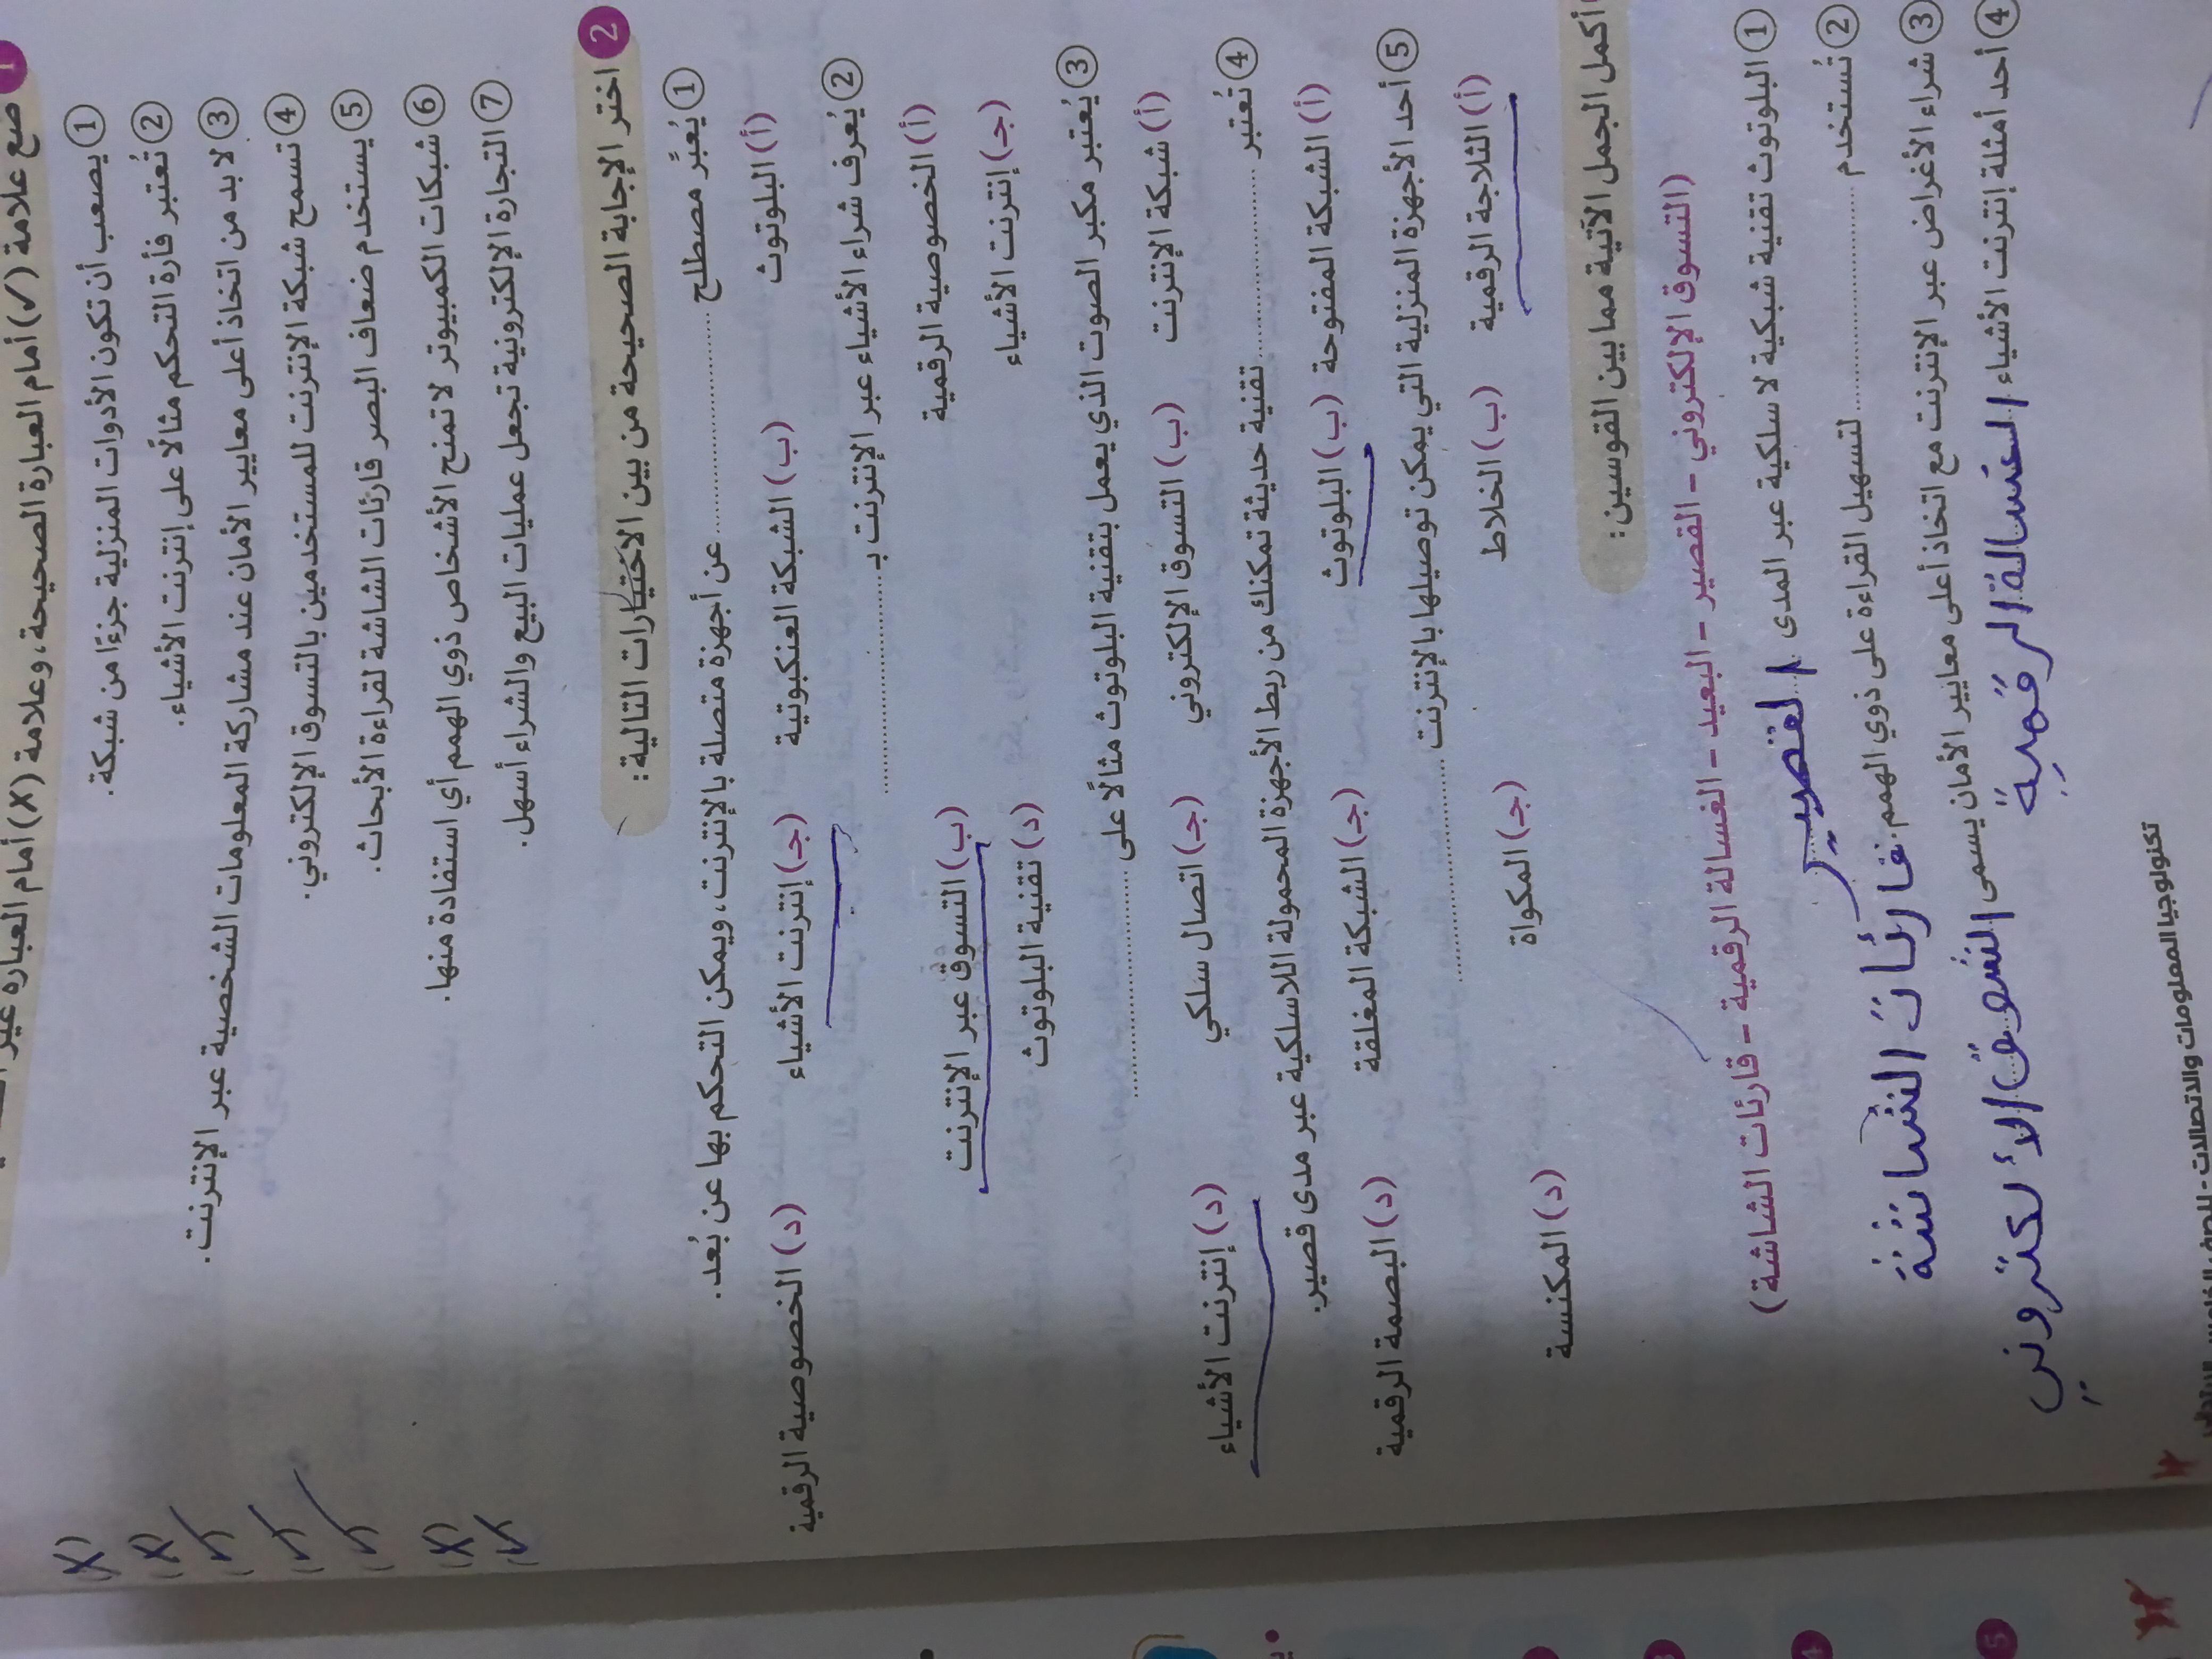 1 ضع علامة (✓) أمام العبارة الصحيحة، وعلامة (X) أمام العبارة غير
① يصعب أن تكون الأدوات المنزلية جزءًا من شبكة. (X)
② تُعتبر فأرة التحكم مثالًا على إنترنت الأشياء. (X)
③ لابد من اتخاذ أعلى معايير الأمان عند مشاركة المعلومات الشخصية عبر الإنترنت. (✓)
④ تسمح شبكة الإنترنت للمستخدمين بالتسوق الإلكتروني. (✓)
⑤ يستخدم ضعاف البصر قارئات الشاشة لقراءة الأبحاث. (✓)
⑥ شبكات الكمبيوتر لا تمنح الأشخاص ذوي الهمم أي استفادة منها. (X)
⑦ التجارة الإلكترونية تجعل عمليات البيع والشراء أسهل. (✓)
2 اختر الإجابة الصحيحة من بين الاختيارات التالية:
① يُعبِّر مصطلح .................... عن أجهزة متصلة بالإنترنت، ويمكن التحكم بها عن بُعد.
(أ) البلوتوث (ب) الشبكة العنكبوتية (جـ) إنترنت الأشياء (د) الخصوصية الرقمية
② يُعرف شراء الأشياء عبر الإنترنت بـ ....................
(أ) الخصوصية الرقمية (ب) التسوق عبر الإنترنت
(جـ) إنترنت الأشياء (د) تقنية البلوتوث
③ يُعتبر مكبر الصوت الذي يعمل بتقنية البلوتوث مثالًا على ....................
(أ) شبكة الإنترنت (ب) التسوق الإلكتروني (جـ) اتصال سلكي (د) إنترنت الأشياء
④ تُعتبر .................... تقنية حديثة تمكنك من ربط الأجهزة المحمولة اللاسلكية عبر مدى قصير.
(أ) الشبكة المفتوحة (ب) البلوتوث (جـ) الشبكة المغلقة (د) البصمة الرقمية
⑤ أحد الأجهزة المنزلية التي يمكن توصيلها بالإنترنت ....................
(أ) الثلاجة الرقمية (ب) الخلاط (جـ) المكواة (د) المكنسة
أكمل الجمل الآتية مما بين القوسين:
(التسوق الإلكتروني - القصير - البعيد - الغسالة الرقمية - قارئات الشاشة)
① البلوتوث تقنية شبكية لاسلكية عبر المدى القصير
② تُستخدم .................... لتسهيل القراءة على ذوي الهمم. قارئات الشاشة
③ شراء الأغراض عبر الإنترنت مع اتخاذ أعلى معايير الأمان يسمى التسوق الألكتروني
④ أحد أمثلة إنترنت الأشياء الغسالة الرقمية
تكنولوجيا المعلومات والاتصالات - للصف الخامس الابتدائي
3
4
5